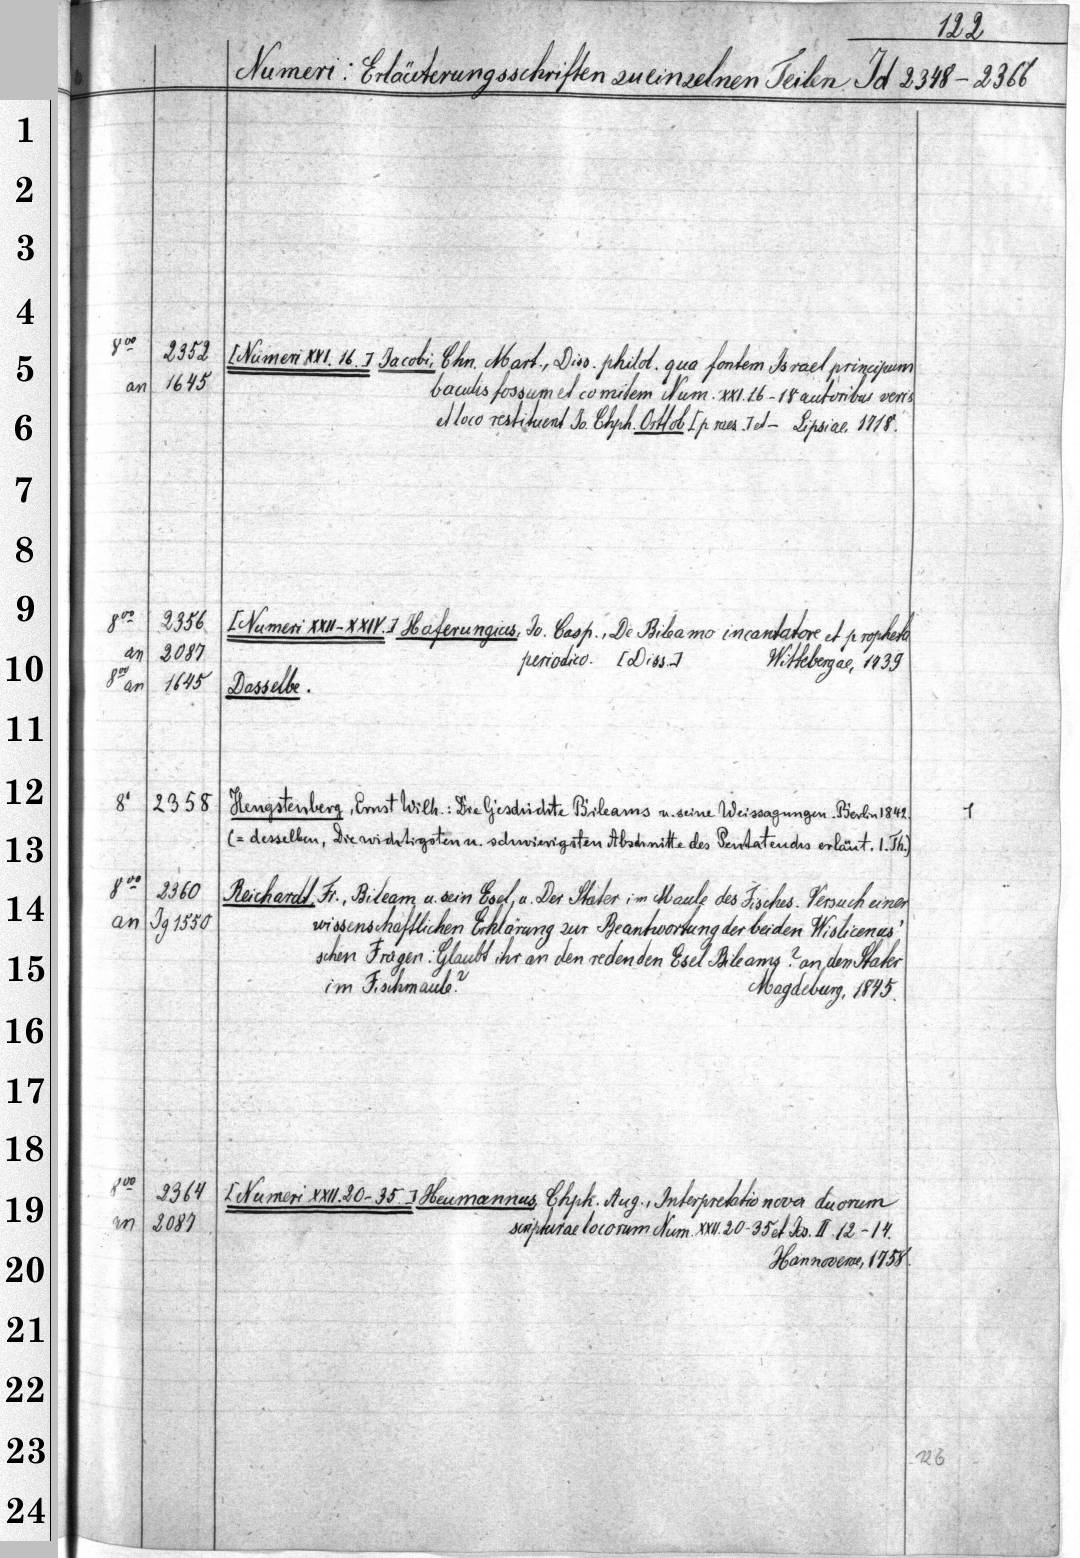 122
Numeri: Erläuterungsschriften zu einzelnen Teilen. Id 2348-2366
1
2
3
4
8vo 2352 [Numeri XXI. 16.] Jacobi, Chn. Mart., Diss. philol. qua fontem Israel principum
5
an 1645 baculis fossum et comitem Num. XXI.16-18 autoribus veris
6
et loco restituent Io. Chph. Ortlob [praes.] et - Lipsiae, 1718.
7
8
9
8vo 2356 [Numeri XXII-XXIV.] Haferungius, Io. Casp., De Bileamo incantatore et propheta
an 2087 periodico. [Diss.] Wittebergae, 1739
10
8vo an 1645 Dasselbe.
11
12
8° 2358 Hengstenberg, Ernst Wilh.: Die Geschichte Bileams u. seine Weissagungen. Berlin 1842. 1
13
(= desselben, Die wichtigsten u. schwierigsten Abschnitte des Pentateuchs erläut. 1. Th.)
8vo 2360 Reichardt, Fr., Bileam u. sein Esel, u. Der Stater im Maule des Fisches. Versuch einer
14
an Ig 1550 wissenschaftlichen Erklärung zur Beantwortung der beiden Wislicenus'
15
schen Fragen: Glaubt ihr an den redenden Esel Bileams? an den Stater
im Fischmaule? Magdeburg, 1845.
16
17
18
8vo 2364 [Numeri XXII.20-35.] Heumannus, Chph. Aug., Interpretatio nova duorum
19
an 2087 scripturae locorum Num. XXII.20-35 et Ps. II.12-14.
20
Hannoverae, 1758.
21
22
23
126
24